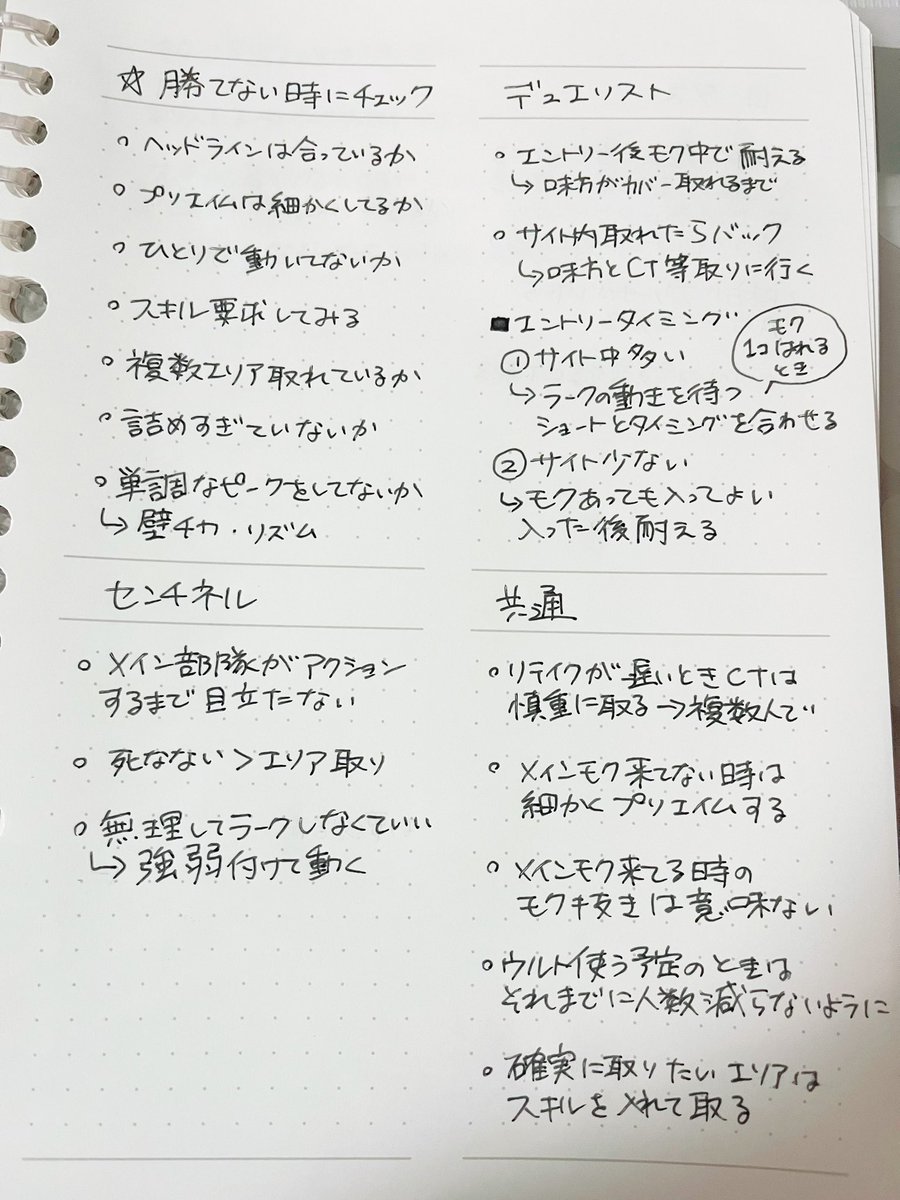 ☆ 勝てない時にチェック
○ ヘッドラインは合っているか
○ プリエイムは細かくしてるか
○ ひとりで動いてないか
○ スキル要求してみる
○ 複数エリア取れているか
○ 詰めすぎていないか
○ 単調なピークをしてないか
↳ 壁チカ・リズム
デュエリスト
○ エントリー後モク中で耐える
↳ 味方がカバー取れるまで
○ サイト内取れたらバック
↳ 味方とCT等取りに行く
■ エントリータイミング
① サイト中多い
モク
1コはれる
とき
↳ ラークの動きを待つ
ショートとタイミングを合わせる
② サイト少ない
↳ モクあっても入ってよい
入った後耐える
センチネル
○ メイン部隊がアクション
するまで目立たない
○ 死なない>エリア取り
○ 無理してラークしなくていい
↳ 強弱付けて動く
共通
○ リテイクが遅いときCTは
慎重に取る→複数人で
○ メインモク来てない時は
細かくプリエイムする
○ メインモク来てる時の
モク抜きは意味ない
○ ウルト使う予定のときは
それまでに人数減らないように
○ 確実に取りたいエリアは
スキルを入れて取る